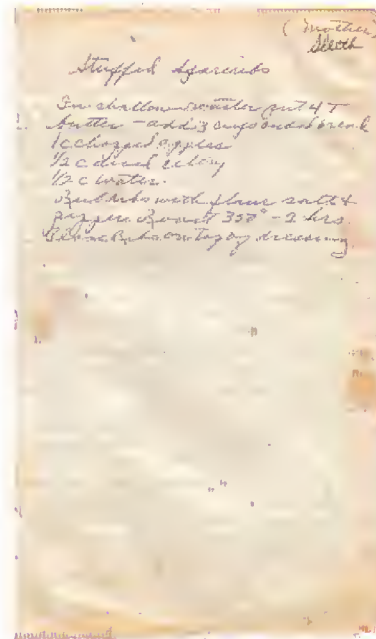 (Mother)
Stuffed Spareribs
In shallow roaster put 4 T
butter - add 3 cups bread
1 c chopped apples
1/2 c diced celery
1/2 c water.
Rub ribs with flour salt &
pepper. Roast 350° - 2 hrs.
Place Ribs on top of dressing